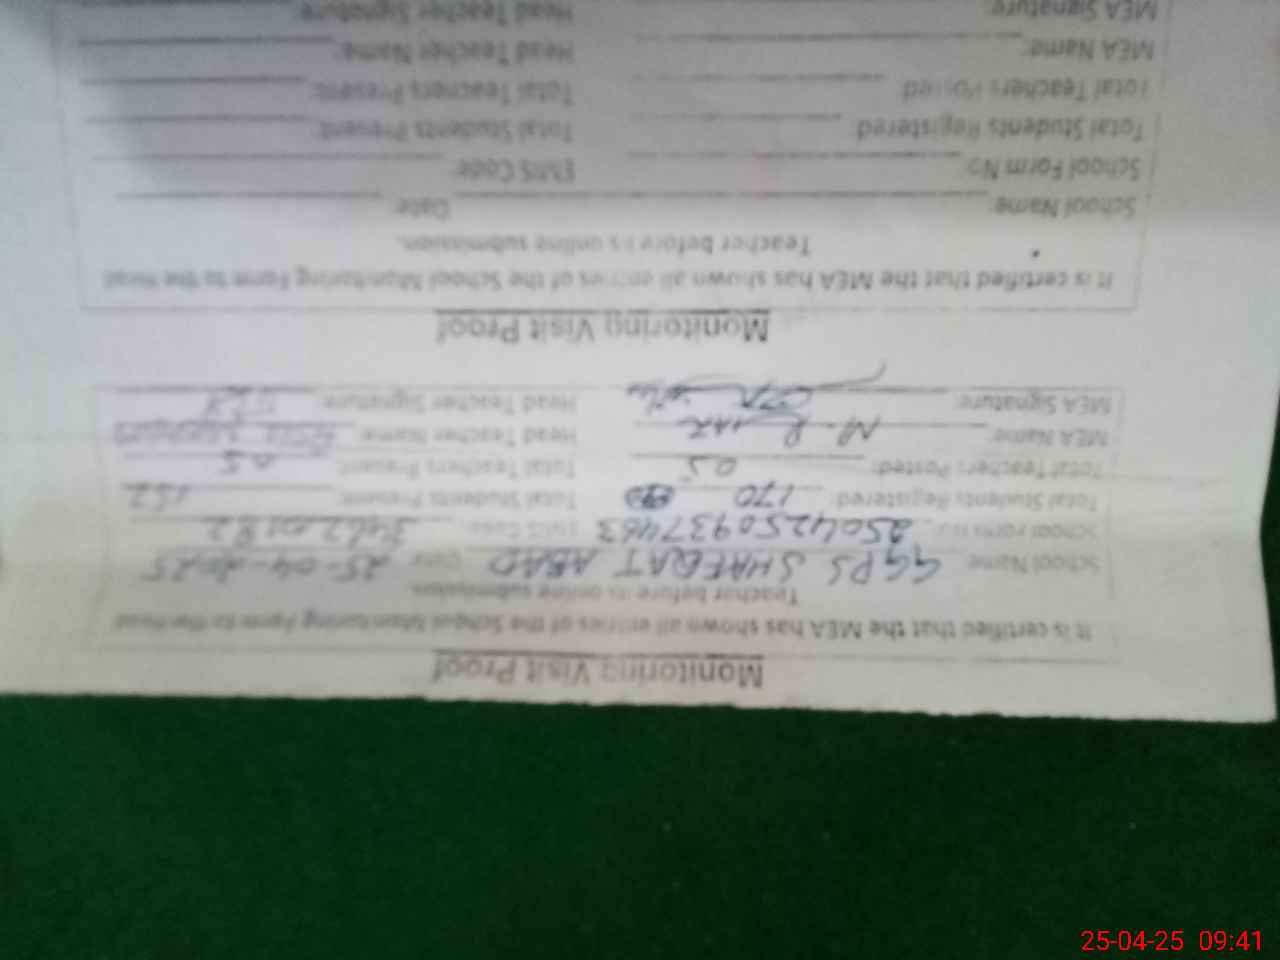 Monitoring Visit Proof
It is certified that the MEA has shown all entries of the School Monitoring Form to the Head
Teacher before its online submission.
School Name: GGPS SHAFQAT ABAD Date: 25-04-2025
School Form No: 2504250937463 EMIS Code:
Total Students Registered: 170 Total Students Present: 152
Total Teachers Posted: 05 Total Teachers Present: 05
MEA Name: M. Riaz Head Teacher Name:
MEA Signature: Head Teacher Signature:
Monitoring Visit Proof
It is certified that the MEA has shown all entries of the School Monitoring Form to the Head
Teacher before its online submission.
School Name: Date:
School Form No: EMIS Code:
Total Students Registered: Total Students Present:
Total Teachers Posted: Total Teachers Present:
MEA Name: Head Teacher Name:
MEA Signature: Head Teacher Signature:
25-04-25 09:41